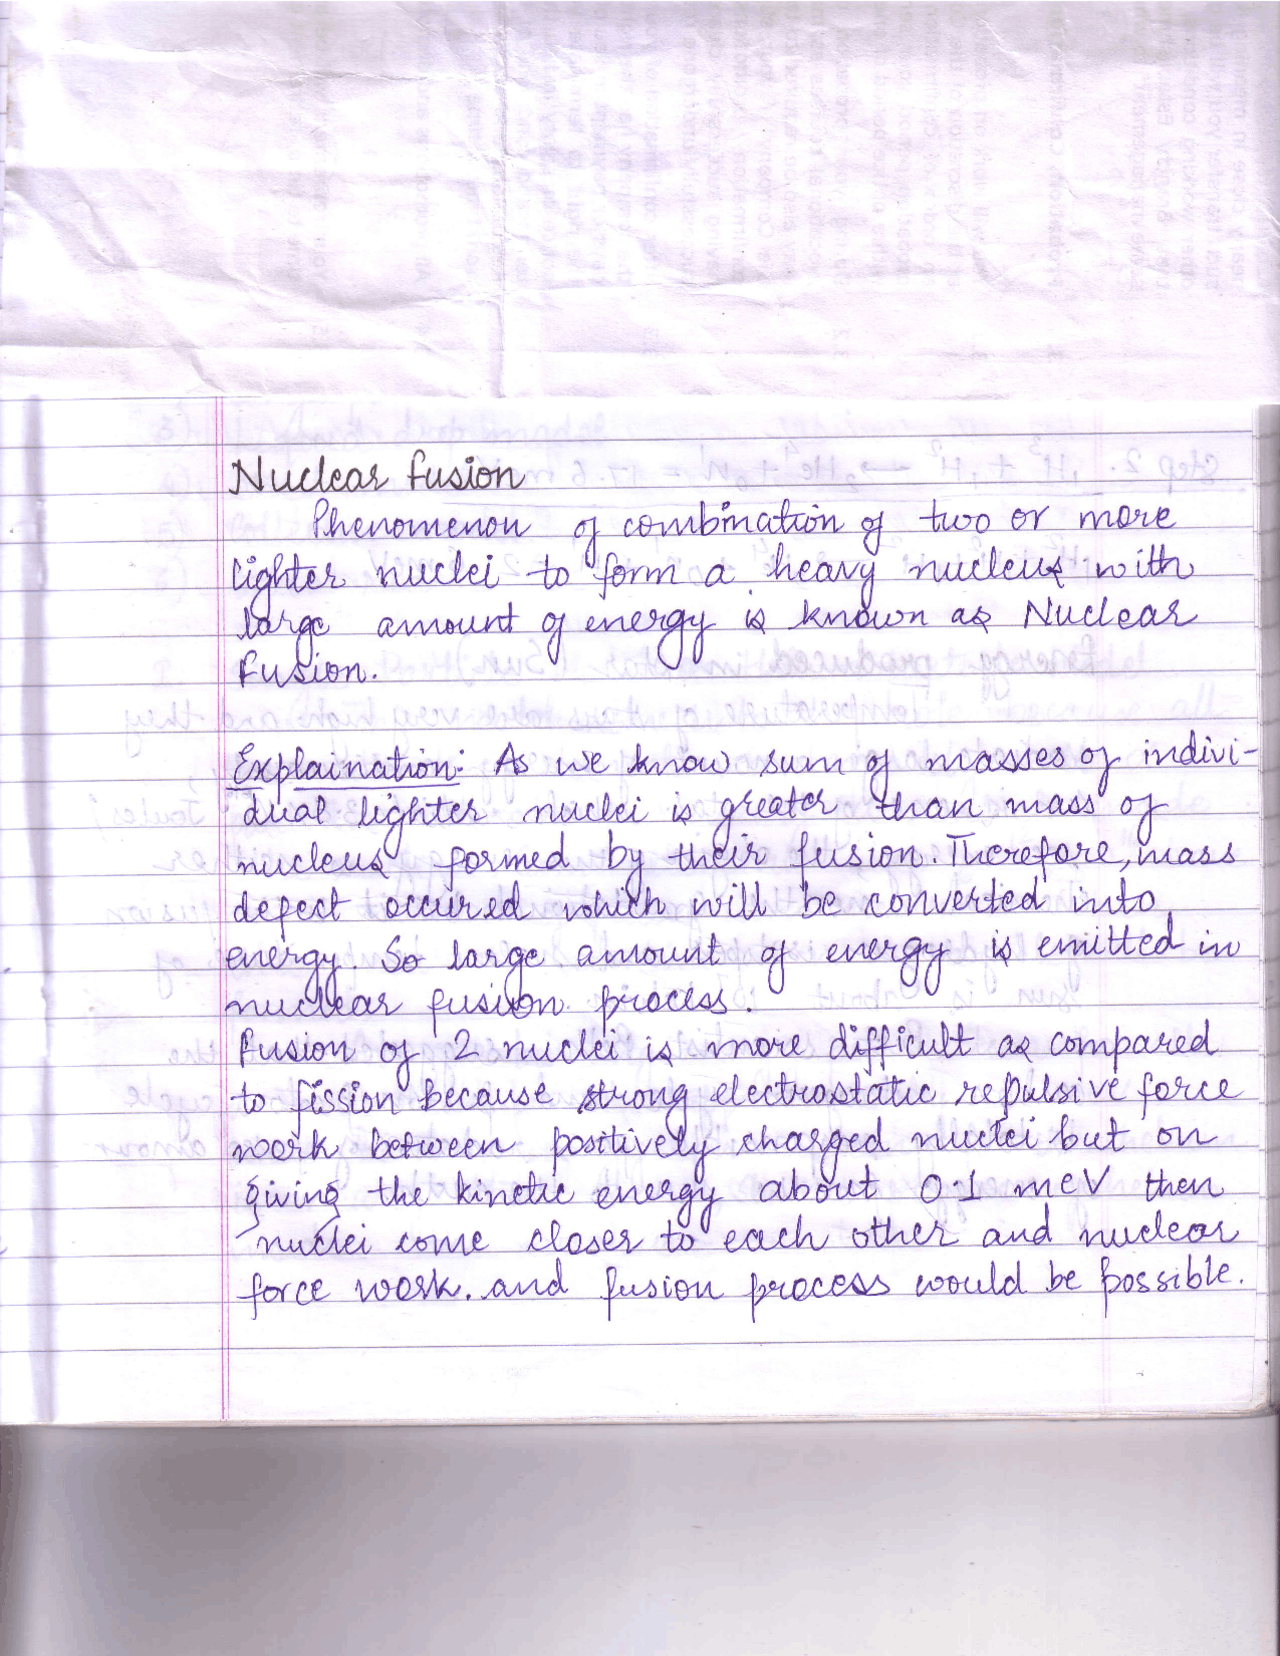 Nuclear fusion
Phenomenon of combination of two or more
lighter nuclei to form a heavy nucleus with
large amount of energy is known as Nuclear
fusion.
Explaination: As we know sum of masses of indivi-
dual lighter nuclei is greater than mass of
nucleus formed by their fusion. Therefore, mass
defect occured which will be converted into
energy. So large amount of energy is emitted in
nuclear fusion process.
Fusion of 2 nuclei is more difficult as compared
to fission because strong electrostatic repulsive force
work between positively charged nuclei but on
giving the kinetic energy about 0.1 meV then
nuclei come closer to each other and nuclear
force work. and fusion process would be possible.